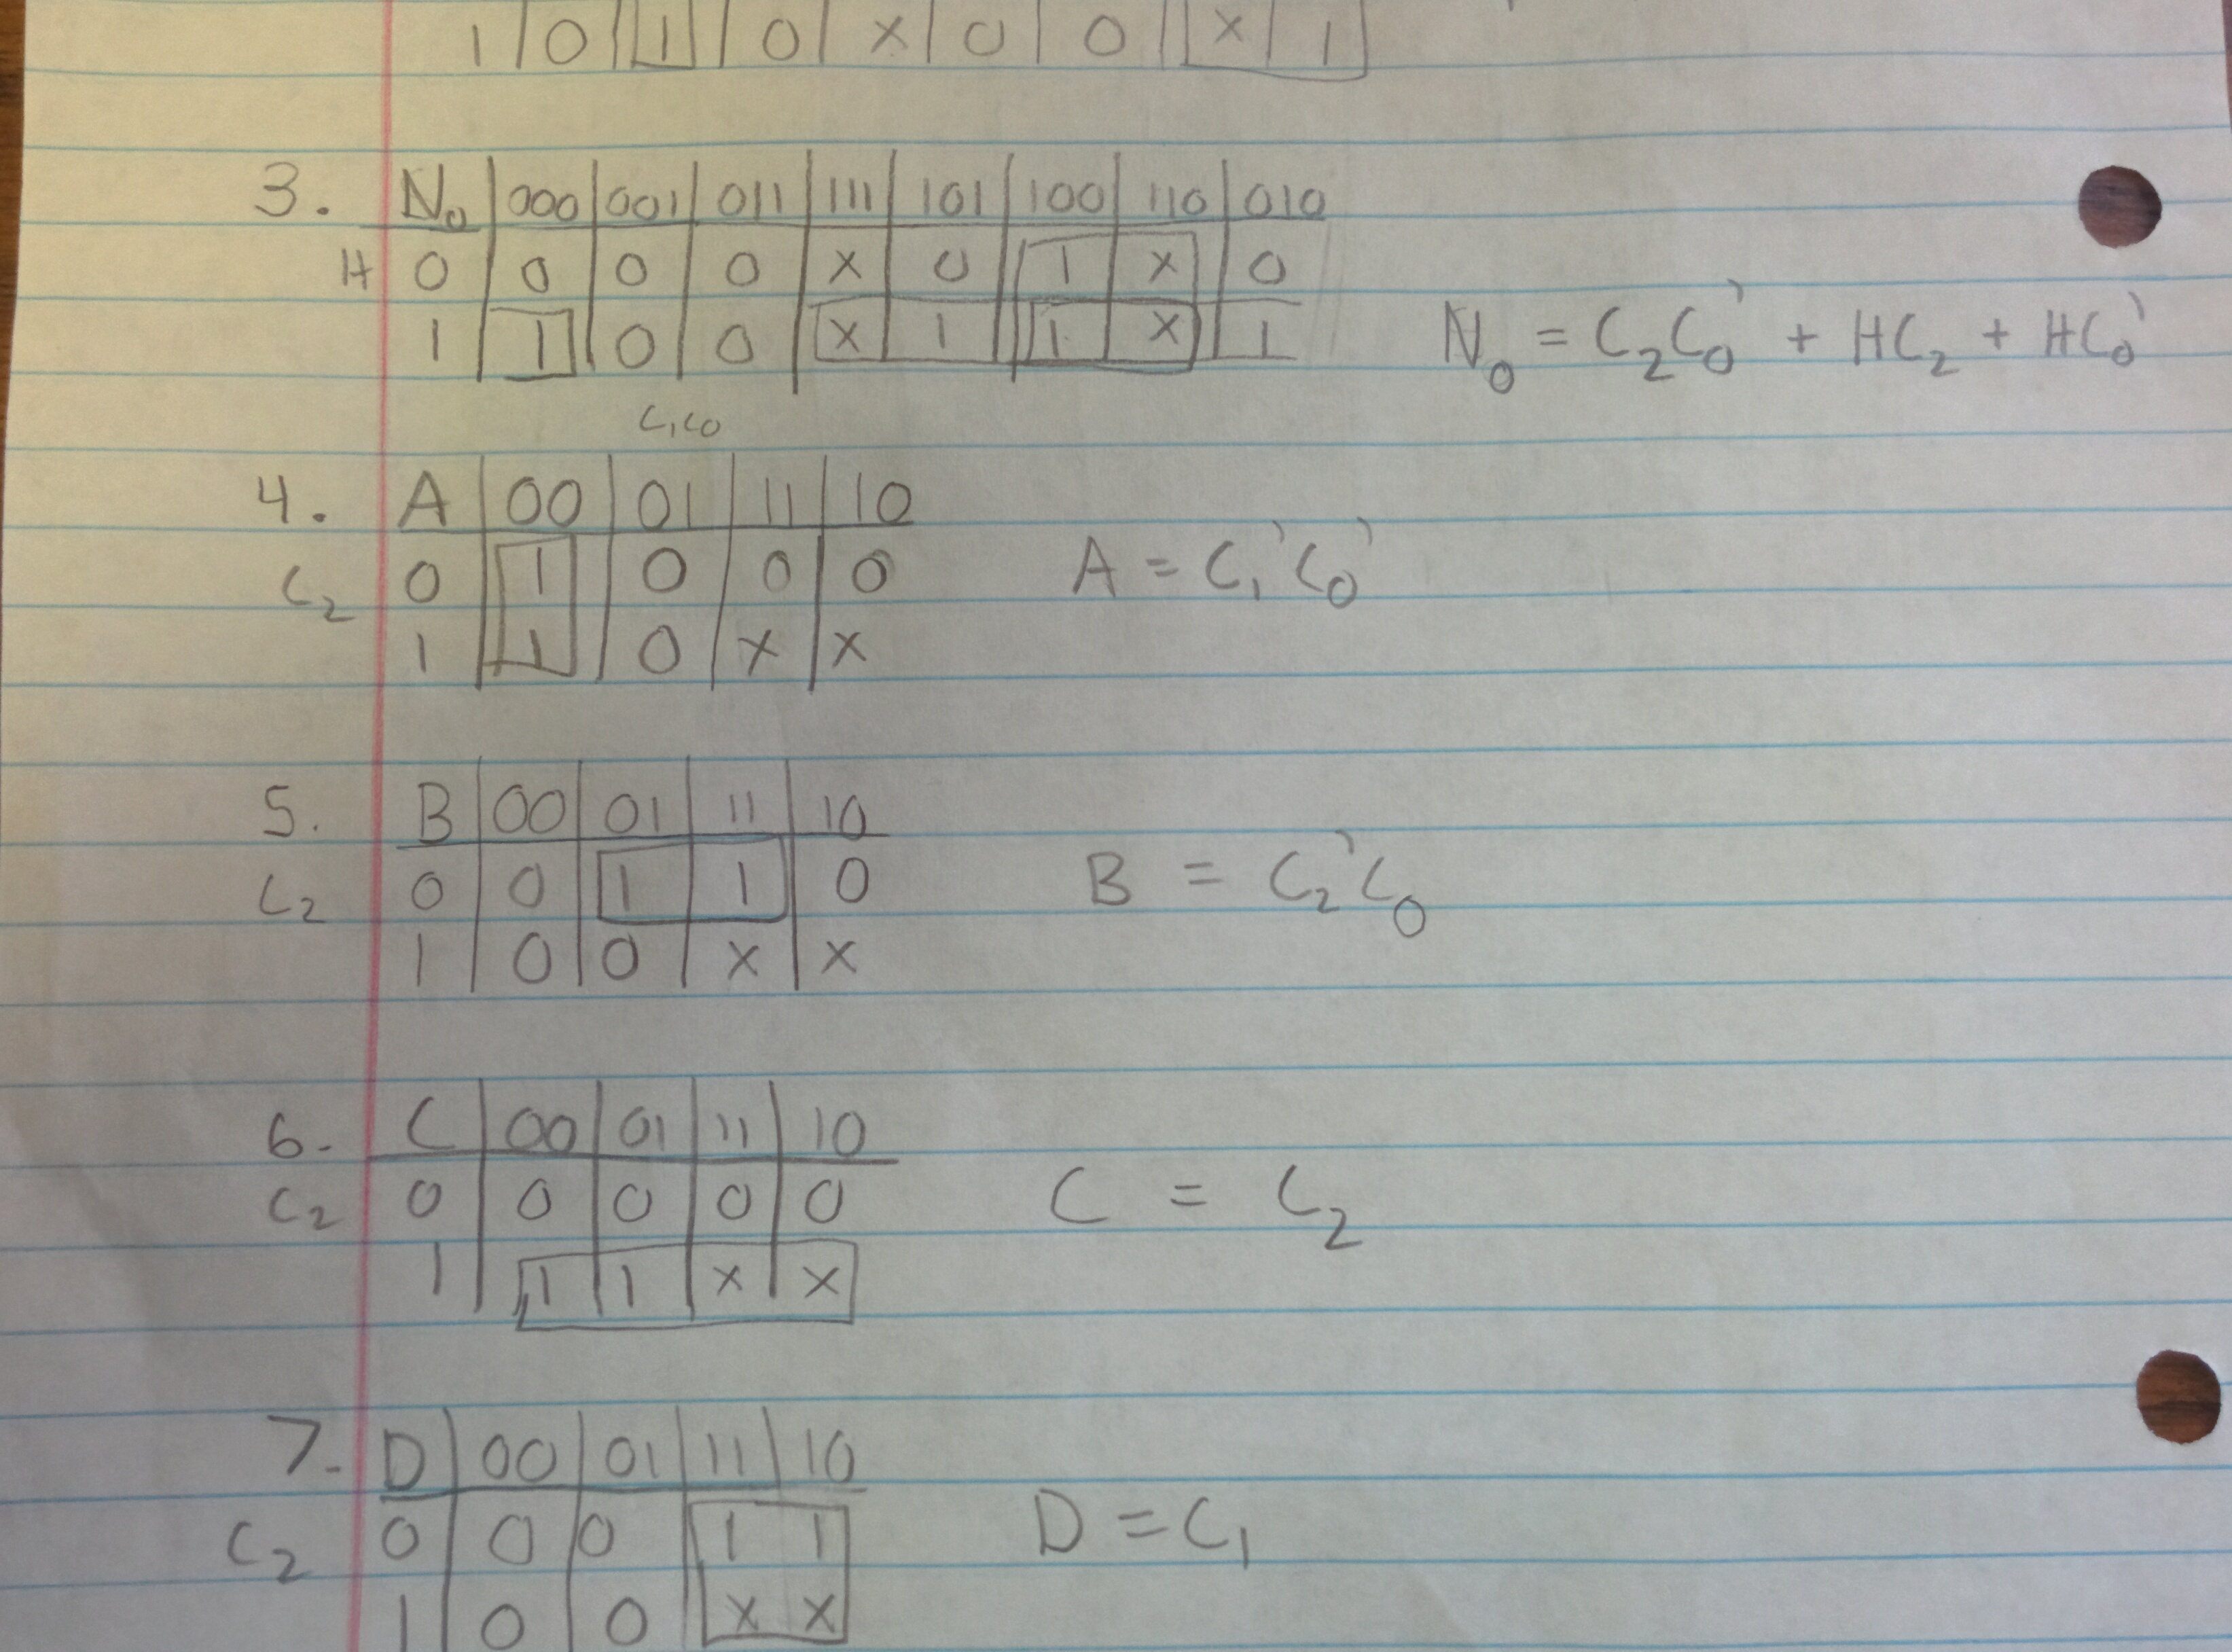 1 | 0 | 1 | 0 | X | 0 | 0 | X | 1
3. N₀ | 000 | 001 | 011 | 111 | 101 | 100 | 110 | 010
H 0 | 0 | 0 | 0 | X | 0 | 1 | X | 0
1 | 1 | 0 | 0 | X | 1 | 1 | X | 1 N₀ = C₂C₀' + HC₂ + HC₀'
C₁C₀
4. A | 00 | 01 | 11 | 10
C₂ 0 | 1 | 0 | 0 | 0 A = C₁'C₀'
1 | 1 | 0 | X | X
5. B | 00 | 01 | 11 | 10
C₂ 0 | 0 | 1 | 1 | 0 B = C₂'C₀
1 | 0 | 0 | X | X
6. C | 00 | 01 | 11 | 10
C₂ 0 | 0 | 0 | 0 | 0 C = C₂
1 | 1 | 1 | X | X
7. D | 00 | 01 | 11 | 10
C₂ 0 | 0 | 0 | 1 1 D = C₁
1 | 0 | 0 | X X